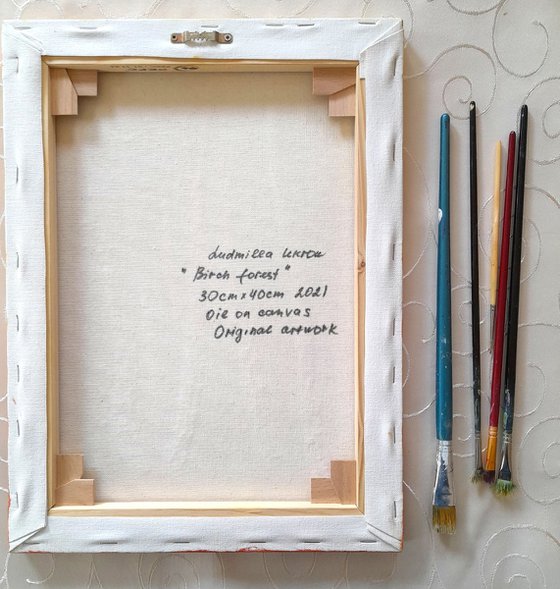 Ludmilla Ukrow
"Birch forest"
30cm x 40cm 2021
Oil on canvas
Original artwork